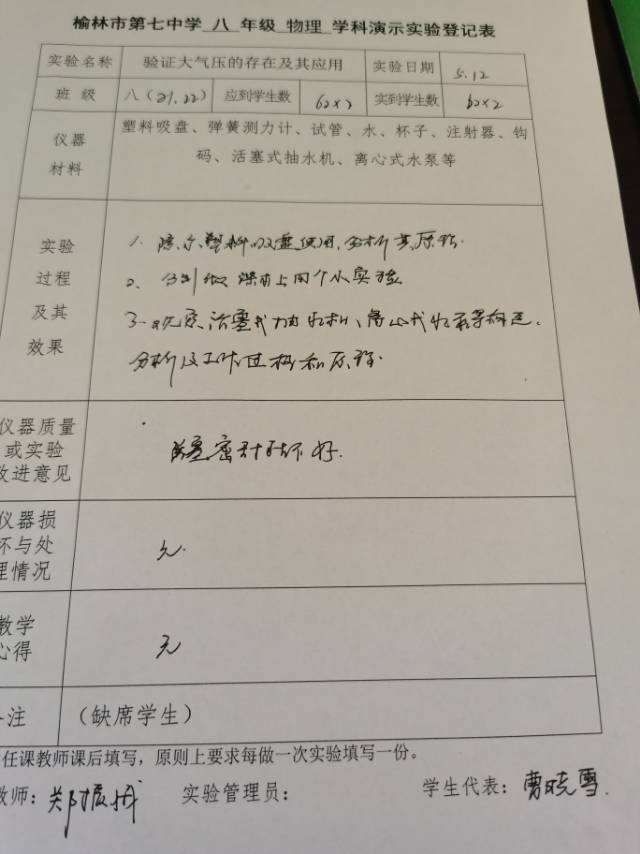 榆林市第七中学 八 年级 物理 学科演示实验登记表
实验名称 验证大气压的存在及其应用 实验日期 5.12
班 级 八(21.22) 应到学生数 60×2 实到学生数 60×2
仪器材料 塑料吸盘、弹簧测力计、试管、水、杯子、注射器、钩
码、活塞式抽水机、离心式水泵等
实验过程及其效果
1. 演示塑料吸盘使用,分析其原理.
2、分别做课本上的个小实验
3.观察活塞式抽水机、离心式水泵等构造.
分析及工作过程和原理.
仪器质量
或实验
改进意见
活塞密封不好.
仪器损
坏与处
理情况
无.
教学
心得
无
注 (缺席学生)
任课教师课后填写,原则上要求每做一次实验填写一份。
教师: 郑振 实验管理员: 学生代表: 曹晓雪.